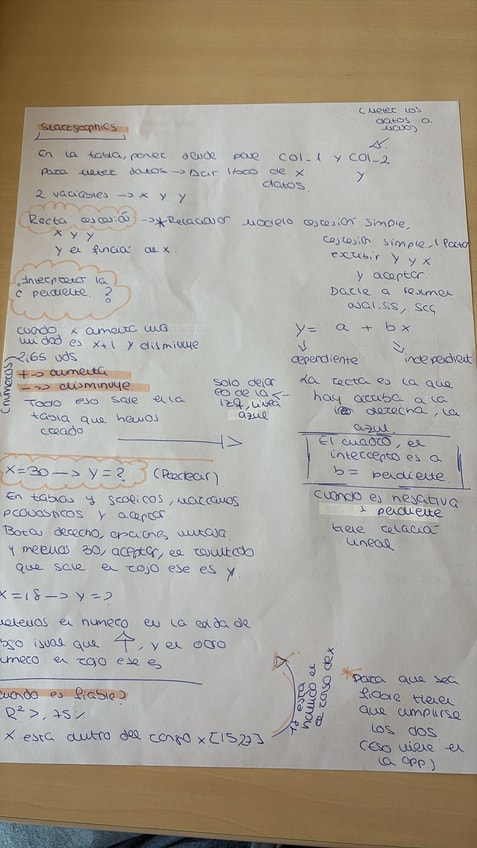 Statgraphics
(meter los
datos a
mano)
En la tabla, poner donde pone COL_1 y COL_2
Para meter datos → Dar libro de x y
datos.
2 variables → x y y
Recta regresión → * Relacionar modelo regresión simple,
x y y
y en función de x.
regresión simple, 1 factor
escribir y y x
y aceptar
Darle a resumen
análisis, SCG
¿Interpretar la
pendiente?
y = a + bx
dependiente independient
cuando x aumenta una
unidad es x+1 y disminuye
2,65 uds
+ → aumenta
- → disminuye
(números)
Todo eso sale en la
tabla que hemos
creado
solo dejar
eo de la
izq, línea
azul
La recta es la que
hay arriba a la
derecha, la
azul.
El cuadro, el
intercepto es a
b = pendiente
x=30 → y=? (Predecir)
cuando es negativa
pendiente
tiene relación
lineal
En tablas y gráficos, marcamos
pronósticos y aceptar
Botón derecho, opciones ventana
y metemos 30, aceptar, el resultado
que sale en rojo ese es y.
x=18 → y=?
metemos el número en la celda de
igual que ↑, y el otro
número en rojo ese es
cuando es fiable?
R² >, 75%
x está dentro del rango x [15,27]
18 está
metido en
el rango de x
* Para que sea
fiable tienen
que cumplirse
los dos
(eso viene en
la app.)